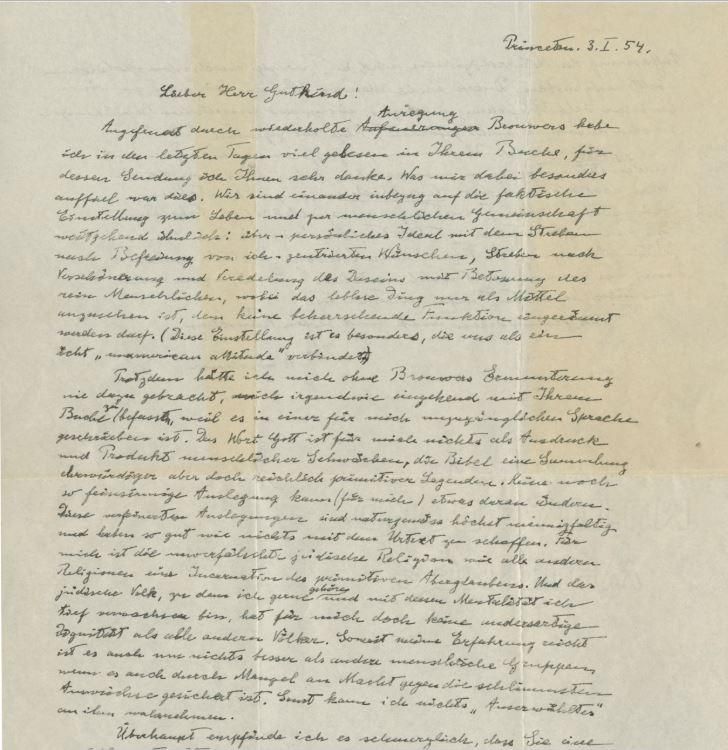 Princeton. 3. I. 54.
Lieber Herr Gutkind!
Anregung
Angefeuert durch wiederholte Brouwers habe
ich in den letzten Tagen viel gelesen in Ihrem Buche, für
dessen Sendung ich Ihnen sehr danke. Was mir dabei besonders
auffiel war dies. Wir sind einander inbezug auf die faktische
Einstellung zum Leben und zur menschlichen Gemeinschaft
weitgehend ähnlich: über-persönliches Ideal mit dem Streben
nach Befreiung von ich-zentrierten Wünschen, Streben nach
Verschönerung und Veredelung des Daseins mit Betonung des
rein Menschlichen, wobei das leblose Ding nur als Mittel
anzusehen ist, dem keine beherrschende Funktion eingeräumt
werden darf. (Diese Einstellung ist es besonders, die uns als ein
echt „unamerican attitude" verbindet)
Trotzdem hätte ich mich ohne Brouwers Ermunterung
nie dazu gebracht, mich irgendwie eingehend mit Ihrem
Buche zu befassen, weil es in einer für mich unzugänglichen Sprache
geschrieben ist. Das Wort Gott ist für mich nichts als Ausdruck
und Produkt menschlicher Schwächen, die Bibel eine Sammlung
ehrwürdiger aber doch reichlich primitiver Legenden. Keine noch
so feinsinnige Auslegung kann (für mich) etwas daran ändern.
Diese verfeinerten Auslegungen sind naturgemäss höchst mannigfaltig
und haben so gut wie nichts mit dem Urtext zu schaffen. Für
mich ist die unverfälschte jüdische Religion wie alle anderen
Religionen eine Incarnation des primitiven Aberglaubens. Und das
jüdische Volk, zu dem ich gerne gehöre und mit dessen Mentalität ich
tief verwachsen bin, hat für mich doch keine andersartige
Dignität als alle anderen Völker. Soweit meine Erfahrung reicht
ist es auch um nichts besser als andere menschliche Gruppen,
wenn es auch durch Mangel an Macht gegen die schlimmsten
Auswüchse gesichert ist. Sonst kann ich nichts „Auserwähltes"
an ihm wahrnehmen.
Überhaupt empfinde ich es schmerzlich, dass Sie eine